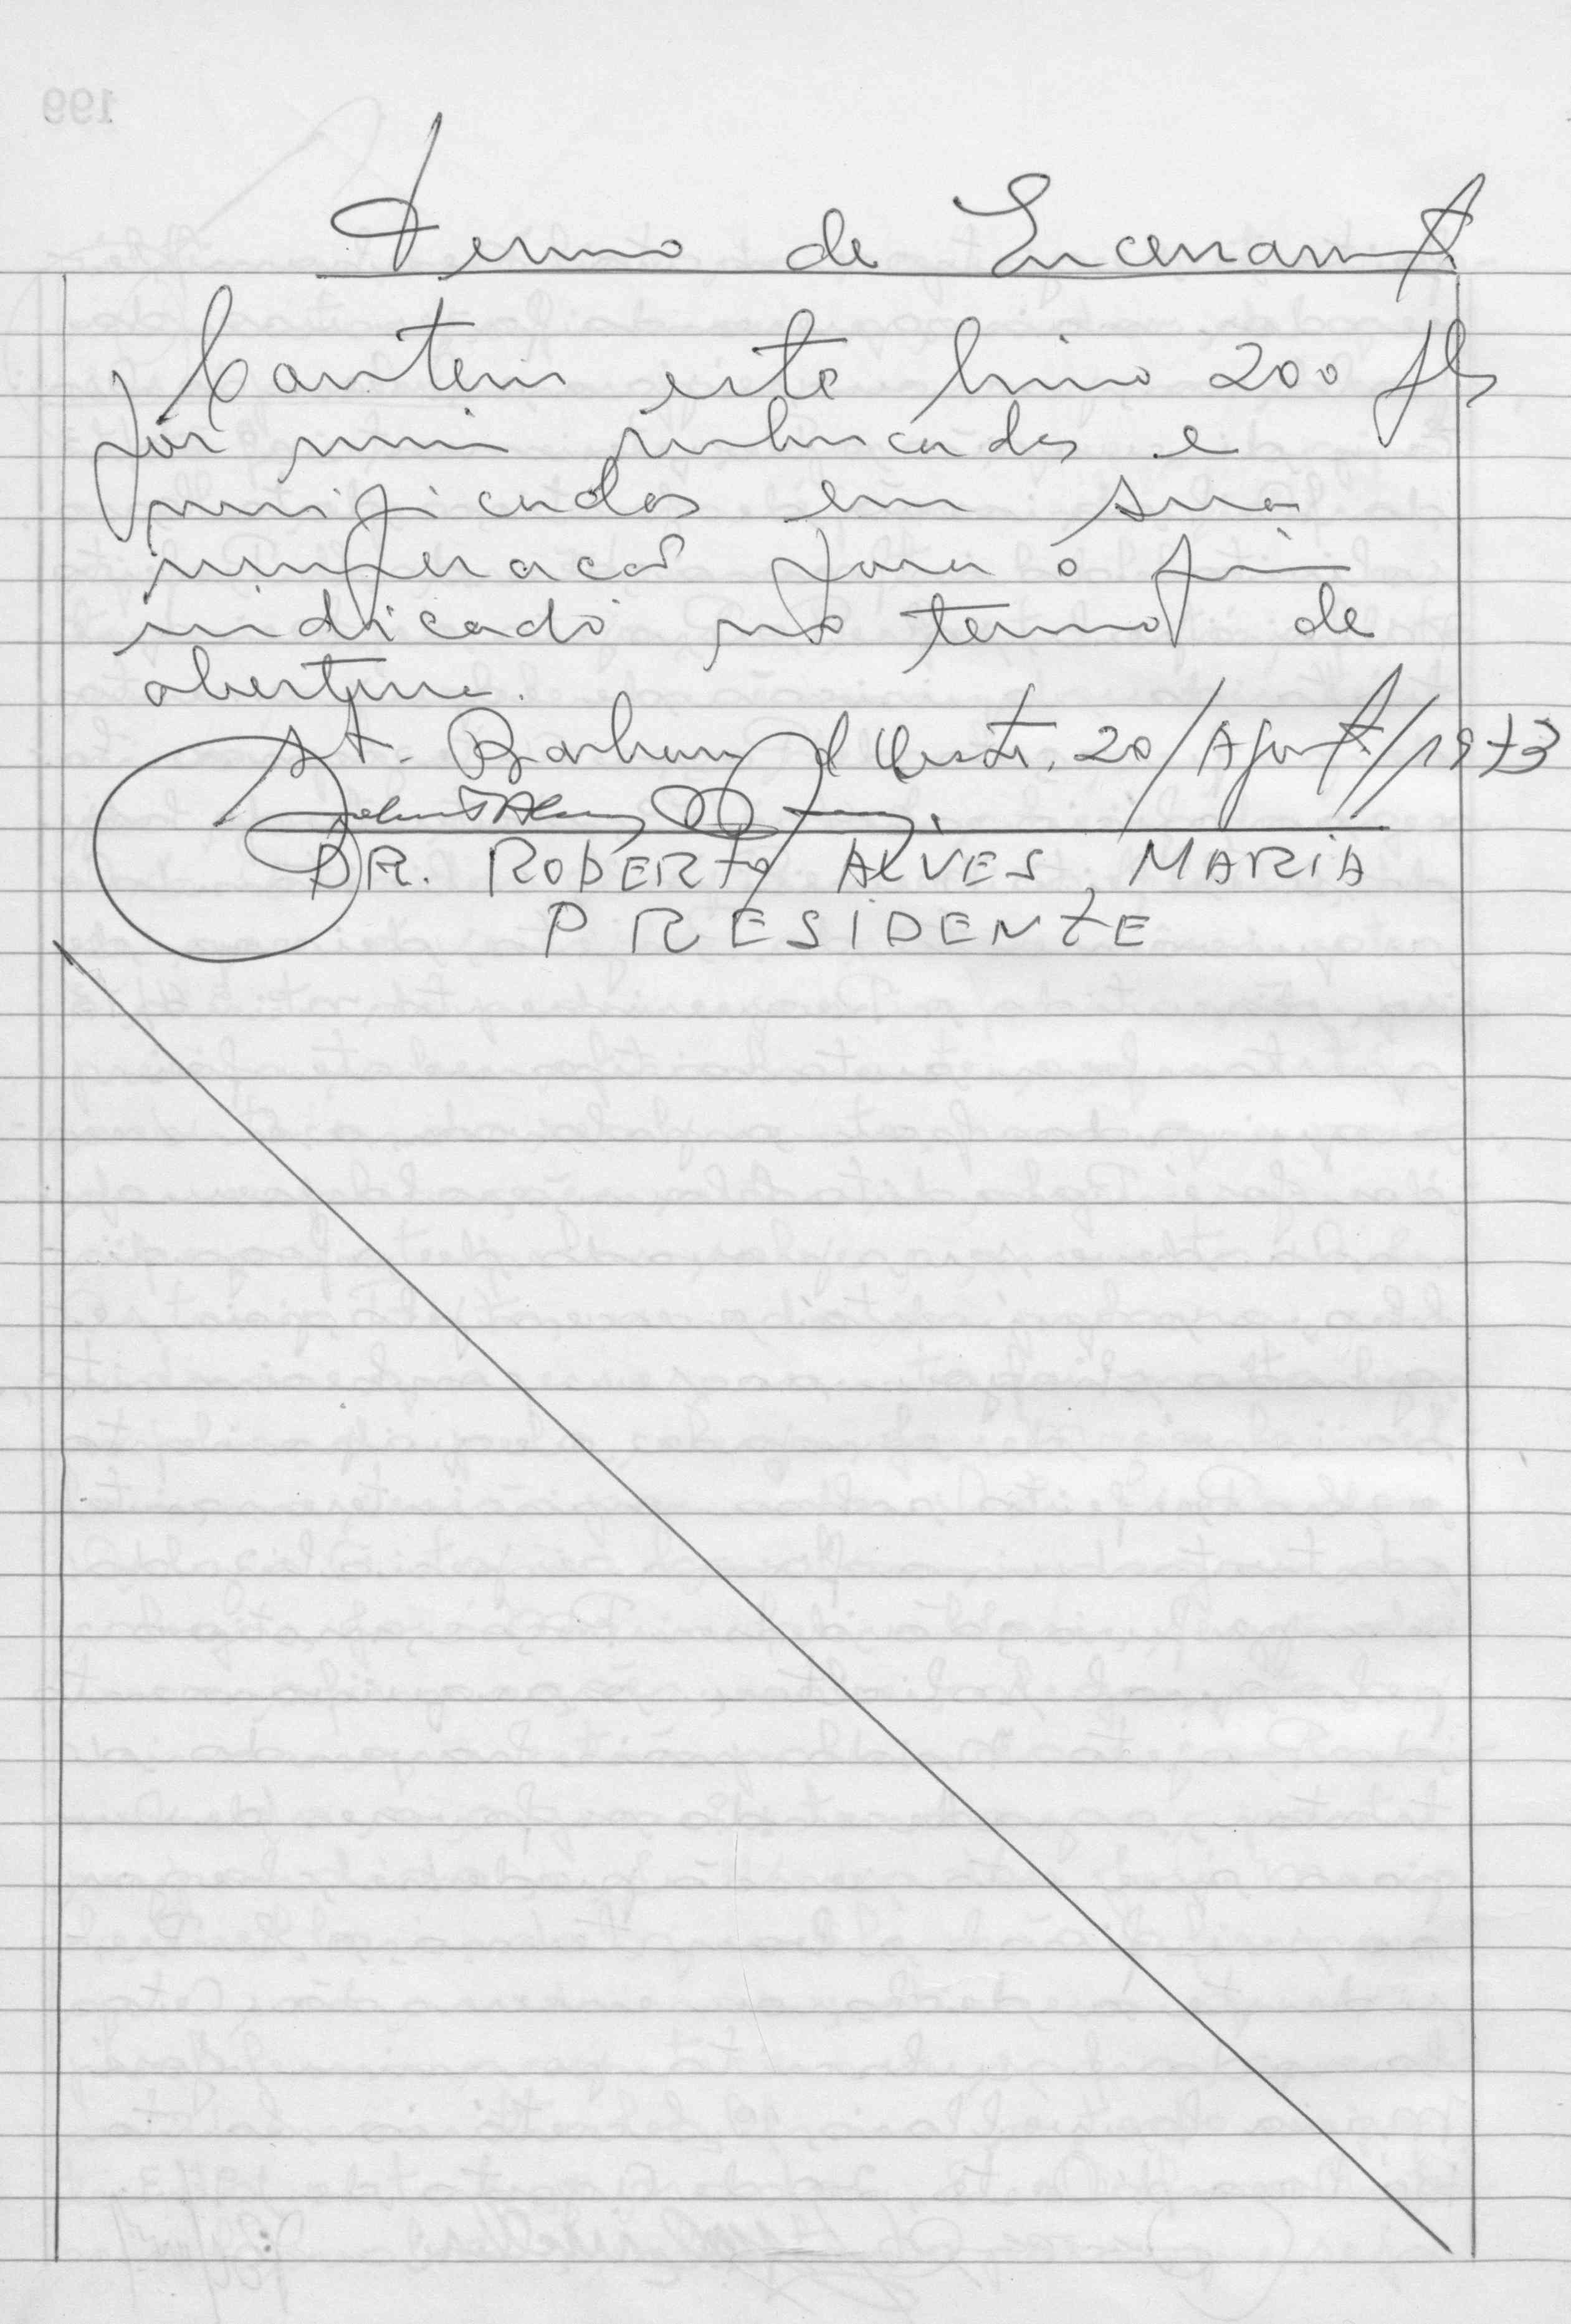 Termo de Encerramento
Contem este livro 200 fls
por mim rubricadas e
verificadas em sua
numeracao para o fim
indicado no termo de
abertura.
St. Barbara d'Oeste, 20/Agosto/1973
DR. ROBERTO ALVES, MARIA
PRESIDENTE